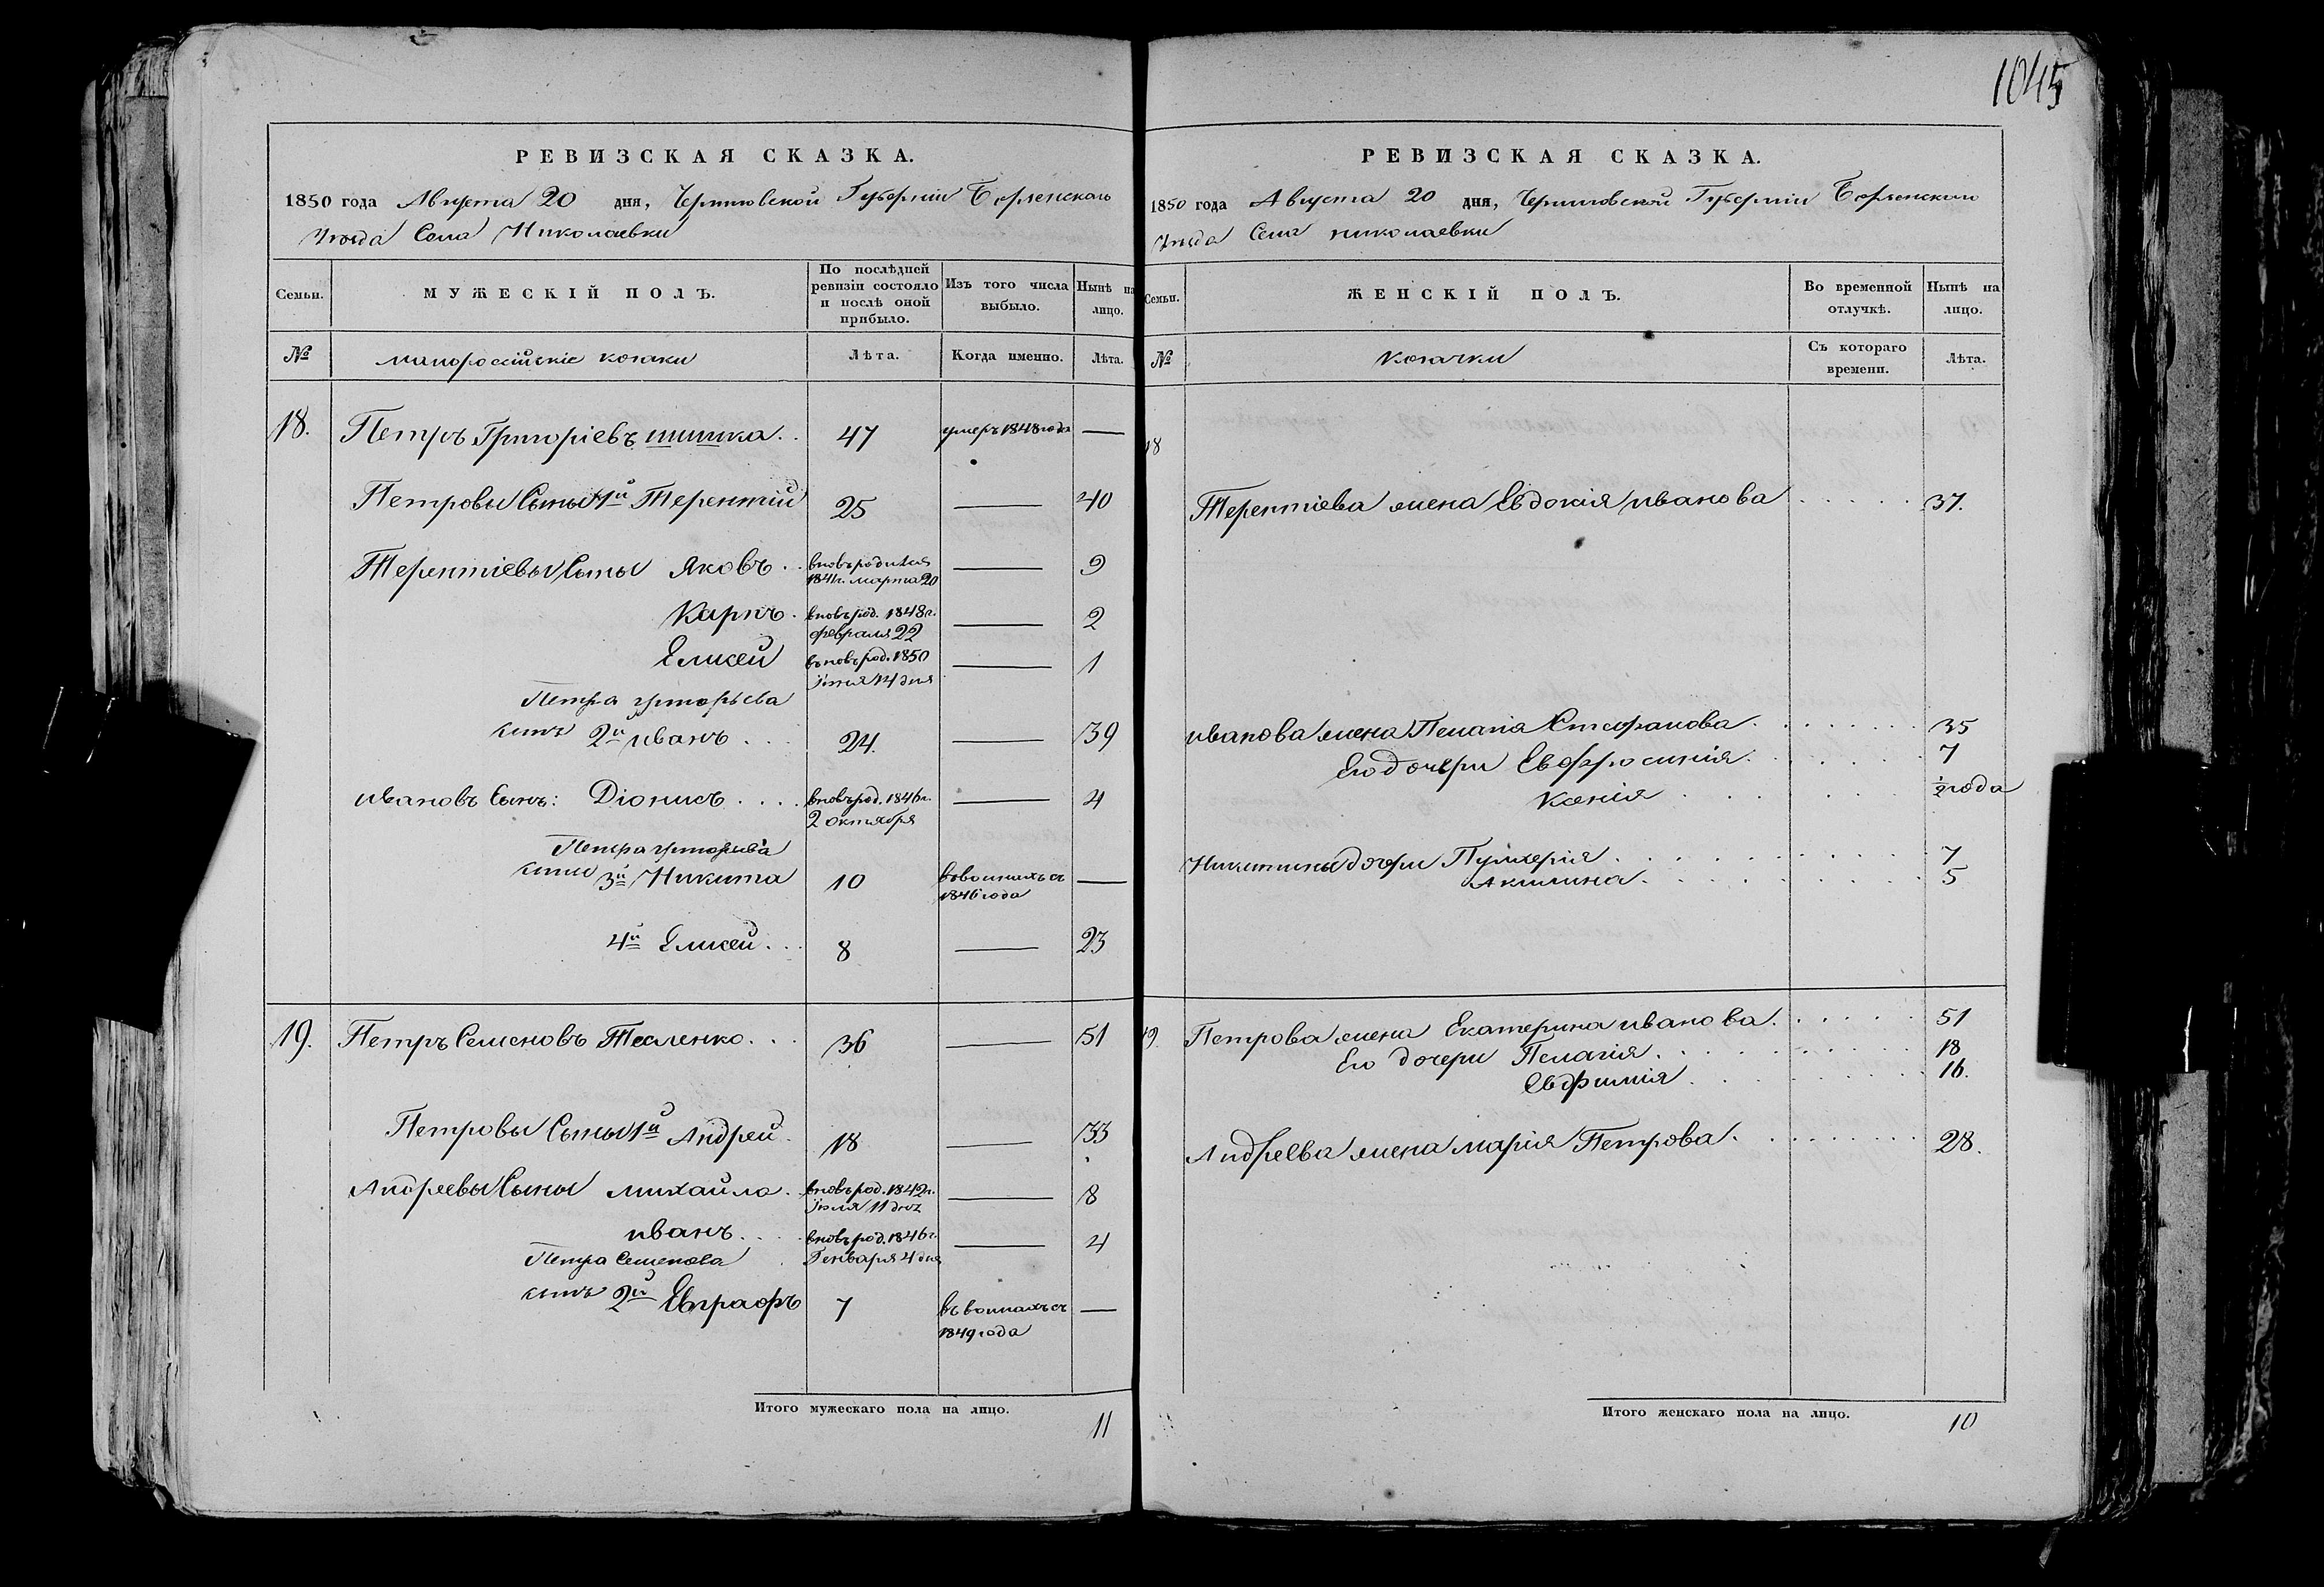 1045
РЕВИЗСКАЯ СКАЗКА.
1850 года Августа 20 дня, Черниговской Губерніи Борзенскаго
Уѣзда Села Николаевки
Семьи.
МУЖЕСКІЙ ПОЛЪ.
По послѣдней ревизіи состояло и послѣ оной прибыло.
Изъ того числа выбыло.
Нынѣ на лицо.
№
малороссійскіе козаки
Лѣта.
Когда именно.
Лѣта.
18. Петръ Григоріевъ шишка . . 47 умеръ 1848 года —
Петровы Сыны 1й Терентій 25 — 40
Терентіевы Сыны Яковъ . . вновь родился — 9
184 г. марта 20
Карпъ . вновь род. 1848 г. — 2
февраля 22
Елисей вновь род. 1850 — 1
іюня 14 дня
Петра григорьева
сынъ 2й иванъ . . . 24. — 39
ивановъ Сынъ: Діонисъ . . . . вновь род. 1846 г. — 4
2 октября
Петра григорьева
сыны 3й Никита 10 въ воинахъ съ —
1846 года
4й Елисей . . . 8 — 23
19. Петръ Семеновъ Тесленко . . . 36 — 51
Петровы Сыны 1й Андрей . 18 — 33
Андреевы Сыны михайло . . вновь род. 1842 г. — 8
іюля 11 дня
иванъ . . . . вновь род. 1846 г. — 4
Петра Семенова Генваря 4 дня
сынъ 2й Евграфъ 7 въ воинахъ съ —
1849 года
Итого мужескаго пола на лицо.
11
РЕВИЗСКАЯ СКАЗКА.
1850 года Августа 20 дня, Черниговской Губерніи Борзенскаго
Уѣзда Села николаевки
Семьи.
ЖЕНСКІЙ ПОЛЪ.
Во временной отлучкѣ.
Нынѣ на лицо.
№
козачки
Съ котораго времени.
Лѣта.
18
Терентіева жена Евдокія иванова . . . . . 37.
иванова жена Пелагія Стефанова . . . . . . . 35
Его дочери Евфросинія . . . . . . . 7
Ксенія . . . . . ½ года
Никитины дочери Пульхерія . . . . . . . . . . 7
Акилина . . . . . . . . . 5
19. Петрова жена Екатерина иванова . . . . . . 51
Его дочери Пелагія . . . . . . . . . . 18
Евфимія . . . . . . . . 16.
Андреева жена марія Петрова . . . . . . . . . 28.
Итого женскаго пола на лицо.
10